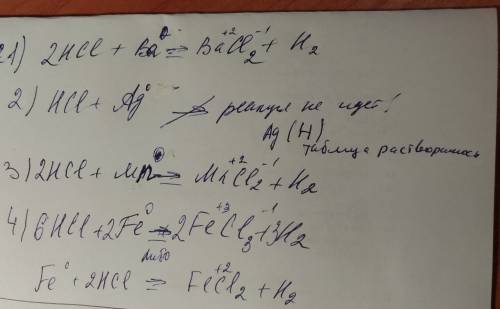 1) 2HCl + Ba⁰ = Ba⁺²Cl₂⁻¹ + H₂
2) HCl + Ag⁰ ↛ реакция не идет!
Ag (H)
таблица растворимость
3) 2HCl + Mn⁰ = Mn⁺²Cl₂⁻¹ + H₂
4) 6HCl + 2Fe⁰ = 2Fe⁺³Cl₃⁻¹ + 3H₂
либо
Fe⁰ + 2HCl = Fe⁺²Cl₂ + H₂